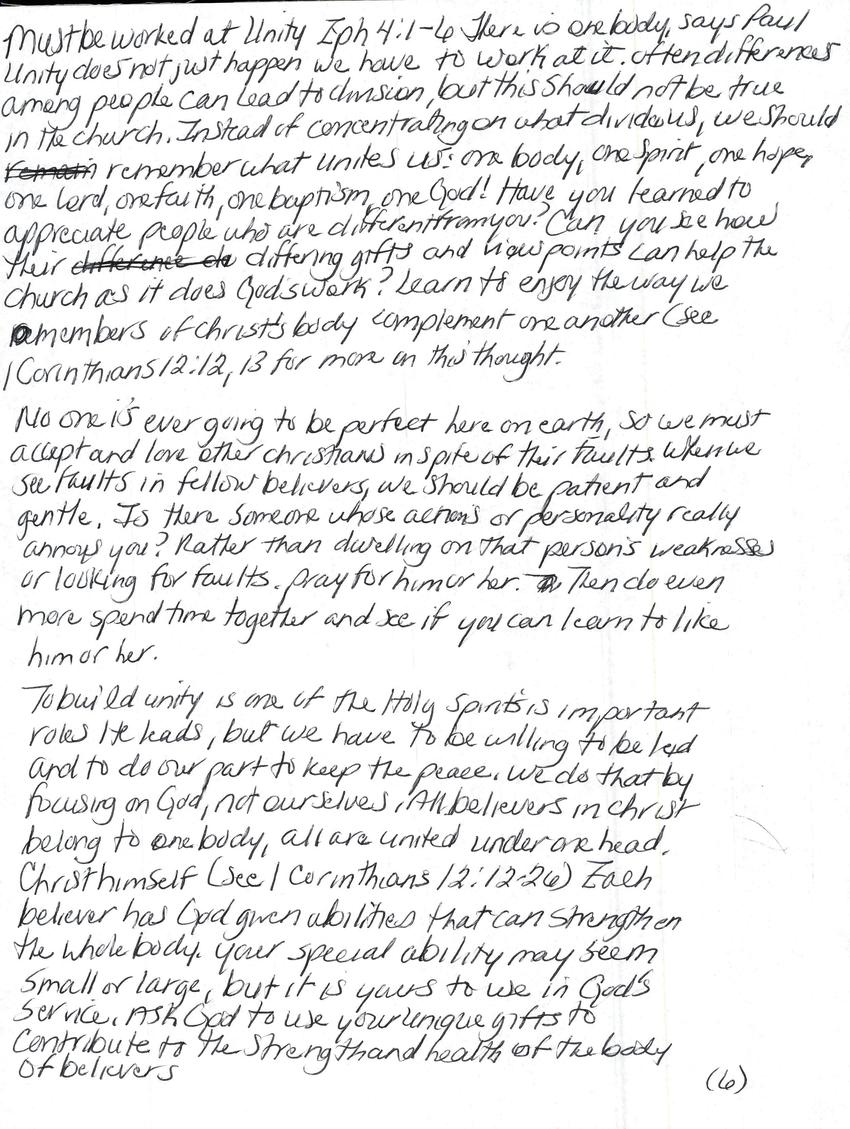 Must be worked at Unity Eph 4:1-6 There is one body, says Paul
Unity does not just happen we have to work at it. often differences
among people can lead to division, but this should not be true
in the church. Instead of concentrating on what divides us, we should
remain remember what unites us: one body, one Spirit, one hope,
one lord, one faith, one baptism, one God! Have you learned to
appreciate people who are different from you? Can you see how
their difference differing gifts and viewpoints can help the
church as it does God's work? Learn to enjoy the way we
members of christ's body complement one another (see
1 Corinthians 12:12, 13 for more on this thought.
No one is ever going to be perfect here on earth, so we must
accept and love other christians in spite of their faults. When we
see faults in fellow believers, we should be patient and
gentle. Is there someone whose actions or personality really
annoys you? Rather than dwelling on that person's weaknesses
or looking for faults. pray for him or her. Then do even
more spend time together and see if you can learn to like
him or her.
To build unity is one of the Holy Spirit's is important
roles He leads, but we have to be willing to be led
and to do our part to keep the peace. we do that by
focusing on God, not ourselves. All believers in christ
belong to one body, all are united under one head.
Christ himself (see 1 Corinthians 12:12-26) Each
believer has God given abilities that can strengthen
the whole body. your special ability may seem
small or large, but it is yours to use in God's
service. Ask God to use your unique gifts to
contribute to the strength and health of the body
of believers
(6)